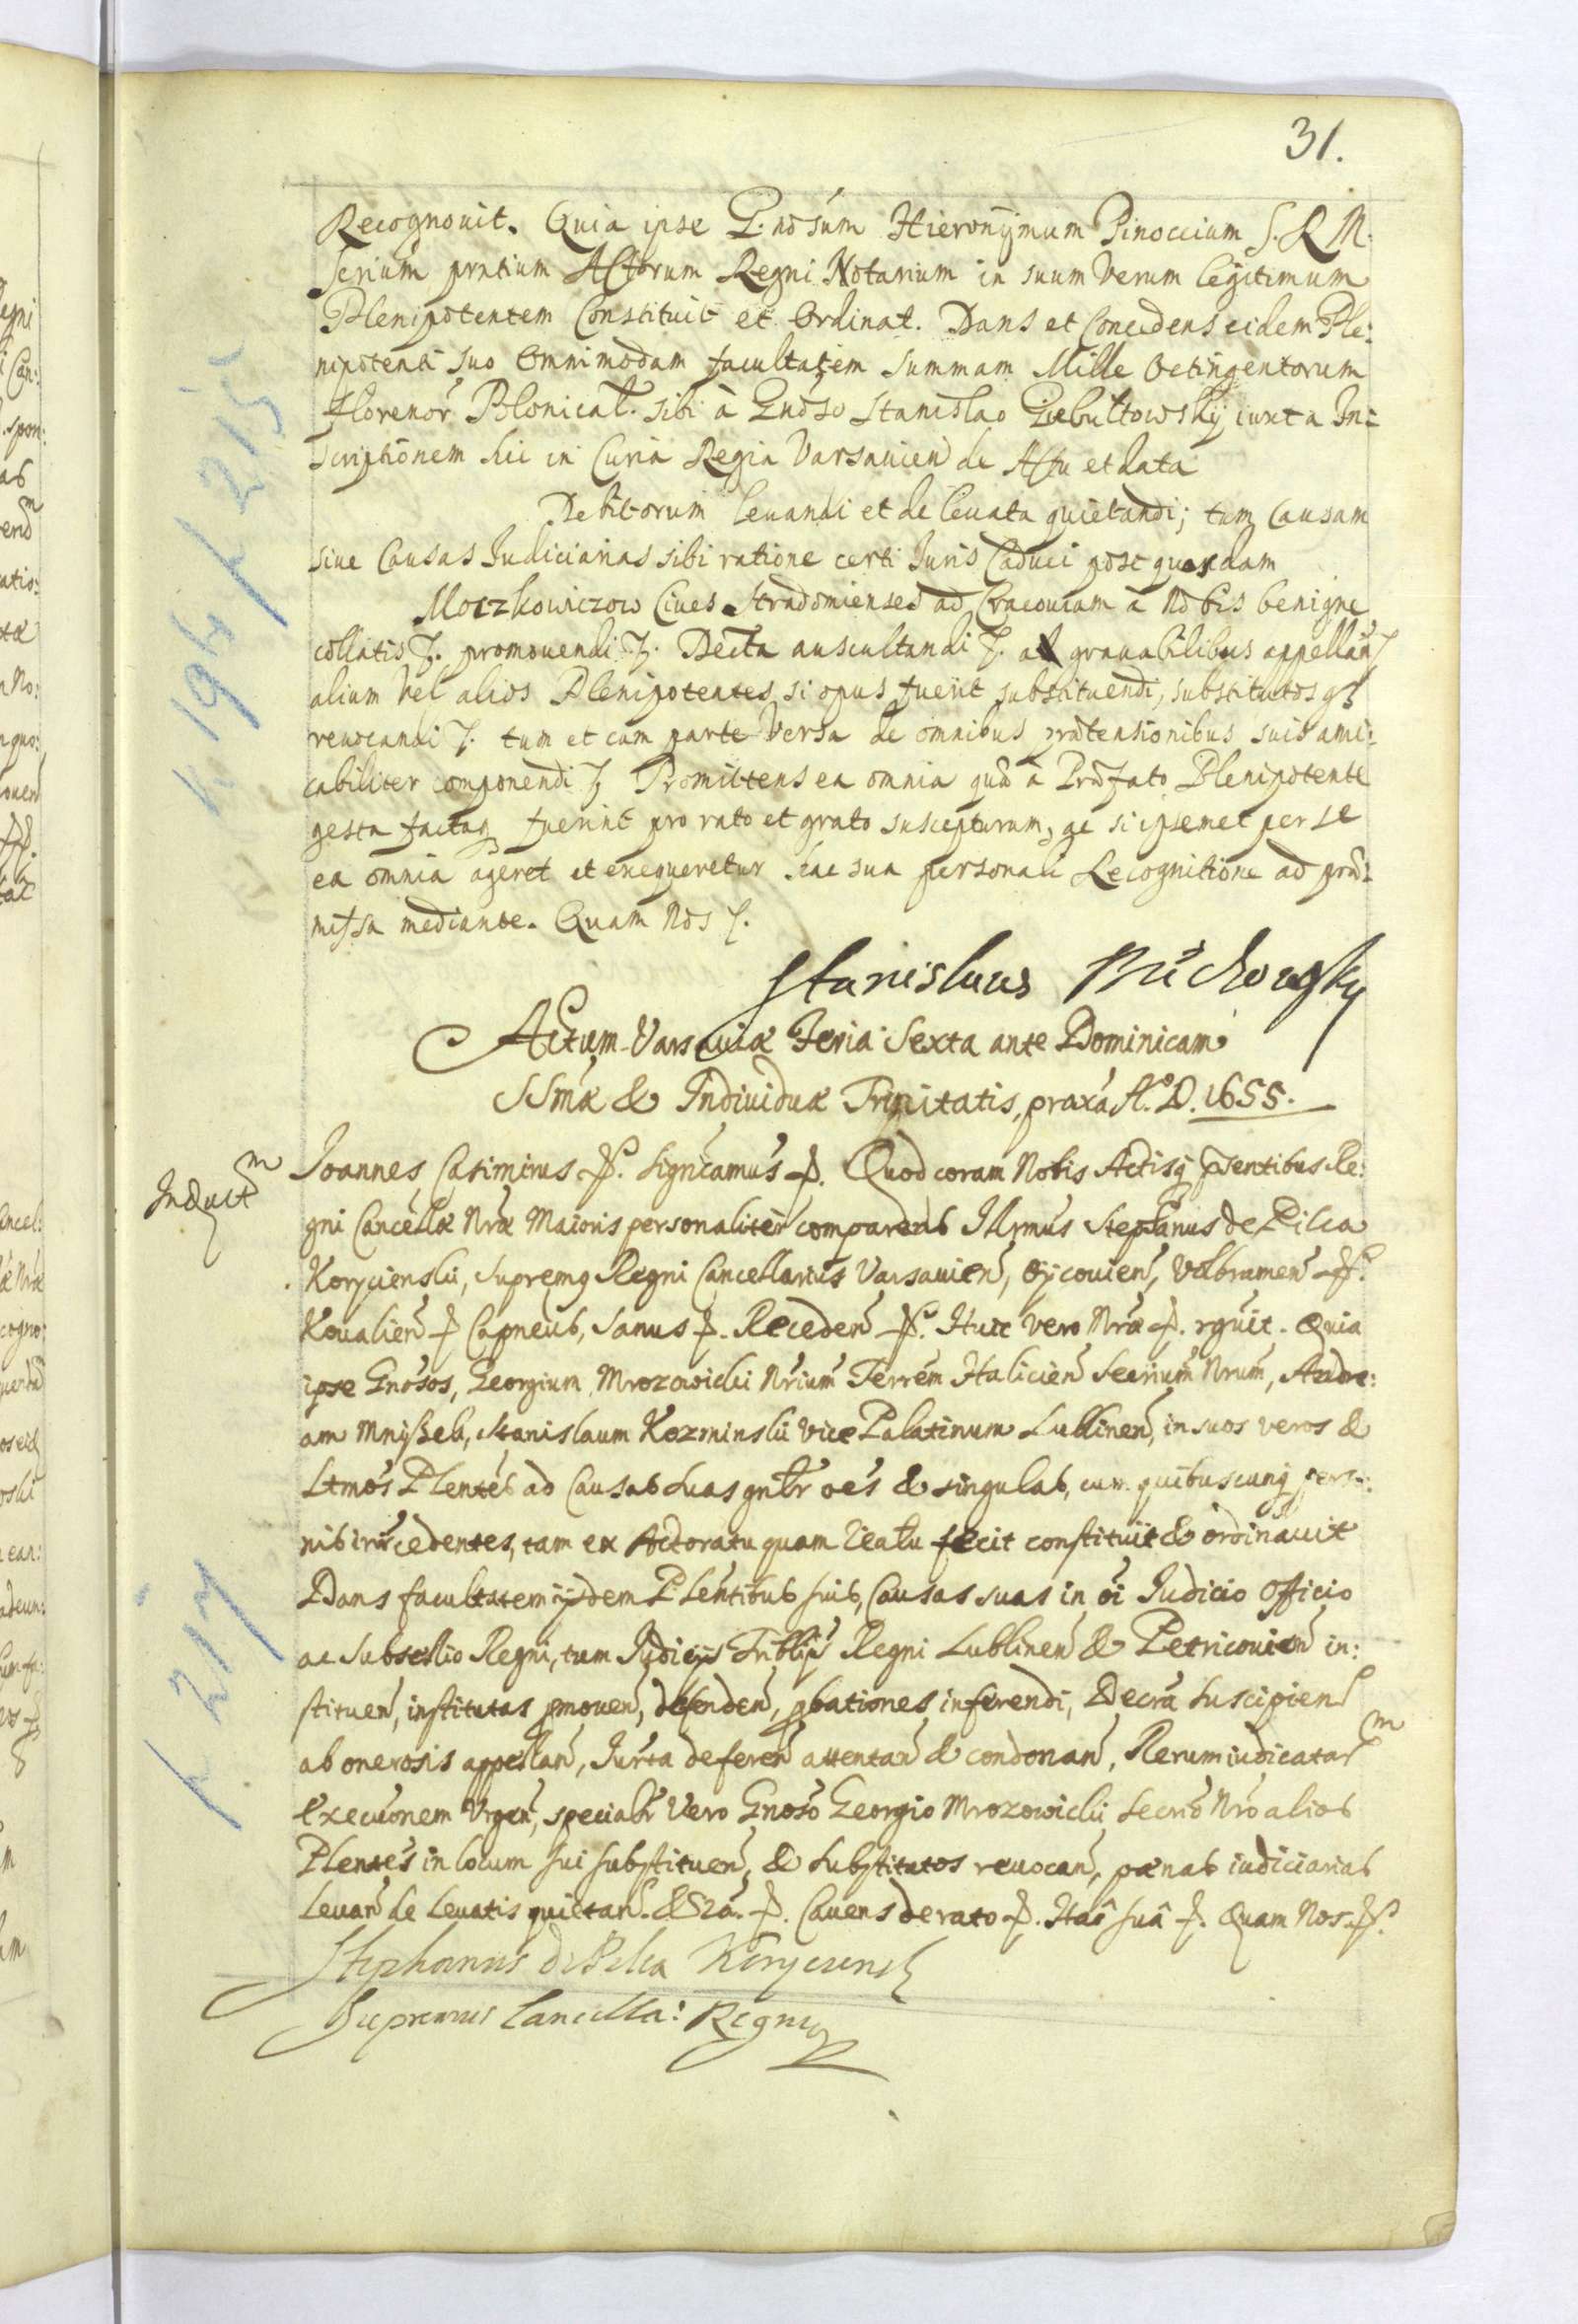 31.
Recognouit. Quia ipse G. nosum Hieronymum Pinoccium S. R. M.
Scrium prntium Actorum Regni Notarium in suum Verum legitimum
Plenipotentem Constituit et Ordinat. Dans et Concedens eidem Ple:
nipotenti suo Omnimodam facultatem summam Mille Octingentorum
florenor Polonical. sibi à Gnoso Stanislao Giebultowsky iuxta In:
scriptionem hic in Curia Regia Varsauien de Actu et data
Debitorum leuandi et de leuata quietandi; tum Causam
siue Causas Iudiciarias sibi ratione certi Iuris Caduci post quosdam
Moczkowiczow Ciues Stradomienses ad Cracouiam à Nobis benigne
collatis promouendi Decta auscultandi a grauabilibus appellan
alium vel alios Plenipotentes si opus fuerit substituendi, substitutos qz
reuocandi tum et cum parte Versa de omnibus prætensionibus suis ami:
cabiliter componendi Promittens ea omnia quæ à Præfato Plenipotente
gesta factaq fuerint pro rato et grato suscepturum, ac si ipsemet per se
ea omnia ageret et exequeretur hac sua personali Recognitione ad præ:
missa mediante. Quam Nos
Stanislaus
Actum Varsauiæ Feria Sexta ante Dominicam
SSmæ & Indiuiduæ Trinitatis, praxa A.o D. 1655.
Induct m
Ioannes Casimirus signicamus Quod coram Nobis Actisq psentibus Re:
gni Cancellæ Nræ Maioris personaliter comparens Illrmus Stephanus de Pilca
Koryciensky, Supremq Regni Cancellarius Varsauien, Oycouien, Volbramen
Koualien Capneus, Sanus Receden Huic vero Nræ rgnuit. Quia
ipse Gnosos, Georgium Mrozowicki Nrium Terrem Halicien Secrium Nrum, Andre:
am Mniszek, Stanislaum Kozminski Vice Palatinum Lublinen, in suos veros &
Ltmos Plentes ad Causas suas gnlr oes & singulas, cum quibuscunq perso:
nis intrcedentes, tam ex Actoratu quam reatu fecit constituit & ordinauit
Dans facultatem ijsdem Plentibus suis, Causas suas in oi Iudicio Officio
ac Subsellio Regni, tum Iudicijs Triblijs Regni Lublinen & Petricouien in:
stituen, institutas pmouen, defenden, pbationes inferendi, Decra suscipien
ab onerosis appellan, Iurta deferen attentan & condonan, Rerum iudicatar m
Execuonem Urgen, specialr Vero Gnoso Georgio Mrozowicki Secrio Nro alios
Plentes in locum sui substituen, & Substitutos reuocan, pænas iudiciarias
leuan de leuatis quietan. &Cra. Cauens de rato Hac suâ Quam Nos
Stephanus de Pilca
Supremus Cancella: Regni
K 194 K 215
K 217